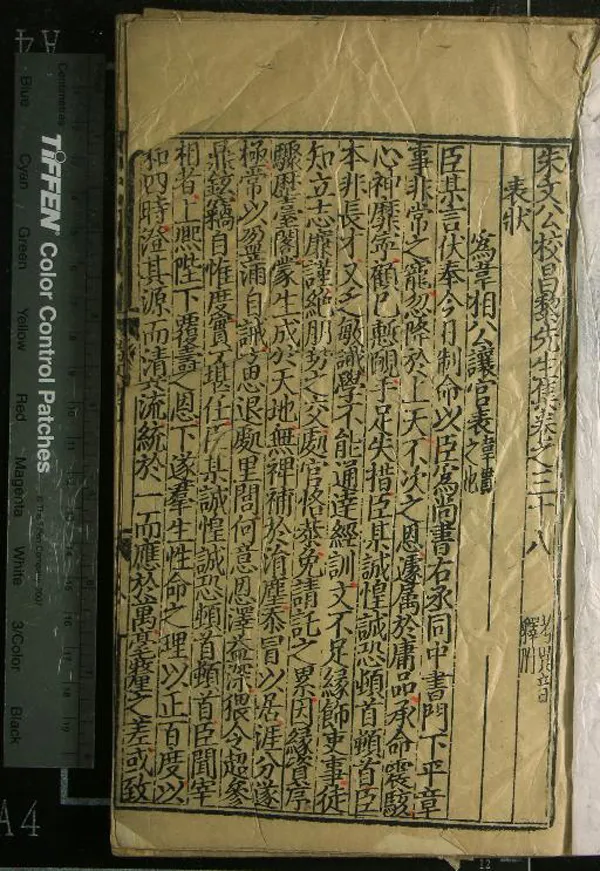 朱文公校昌黎先生集卷之三十八 考異音釋附
表狀
為韋相公讓官表 韋貫之也
臣某言伏奉今日制命以臣為尚書右丞同中書門下平章
事非常之寵忽降於上天不次之恩遽屬於庸品承命震駭
心神靡寧顧已慙靦手足失措臣某誠惶誠恐頓首頓首臣
本非長才又乏敏識學不能通達經訓文不足緣飾吏事徒
知立志廉謹絶朋勢之交處官恪恭免請託之累因緣資序
驟歷臺閣蒙生成於天地無裨補於涓塵忝冒以居涯分遂
極常以盈滿自誡思退處里閭何意恩澤益深猥令超參
鼎鉉竊自惟度實不堪任臣某誠惶誠恐頓首頓首臣聞宰
相者上熙陛下覆燾之恩下遂羣生性命之理以正百度以
和四時澄其源而清其流統於一而應於萬毫釐之差或致
TIFFEN Color Control Patches
© The Tiffen Company, 2007
Centimetres
Blue
Cyan
Green
Yellow
Red
Magenta
White
3/Color
Black
A4
A4